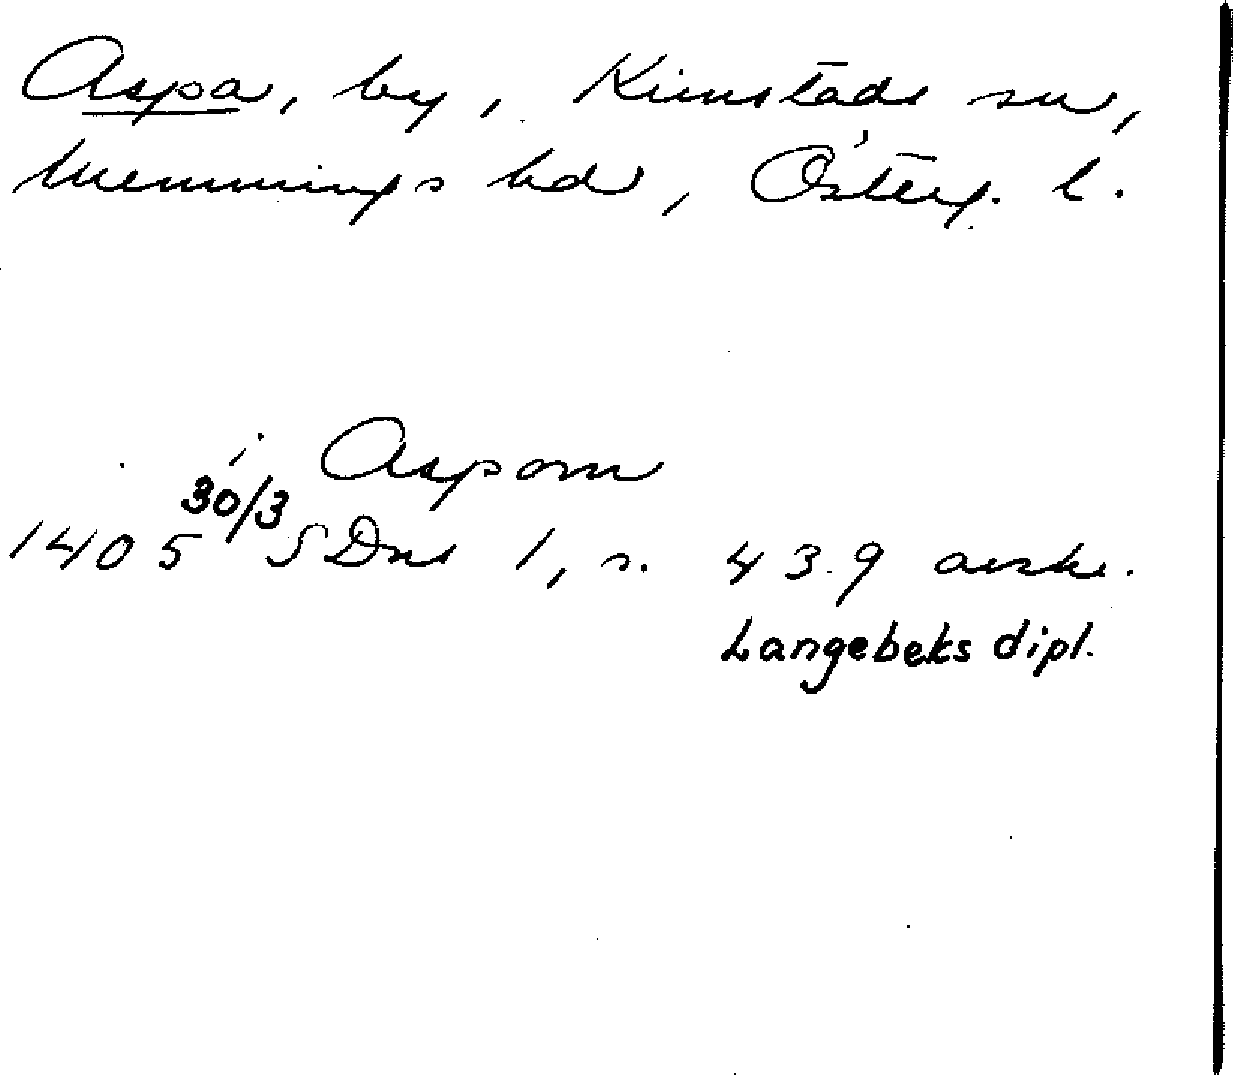 Aspa, by, Kimstads sn,
Memmings hd, Österg. l.
i Aspom
1405 30/3 SDns 1, s. 439 avskr.
Langebeks dipl.